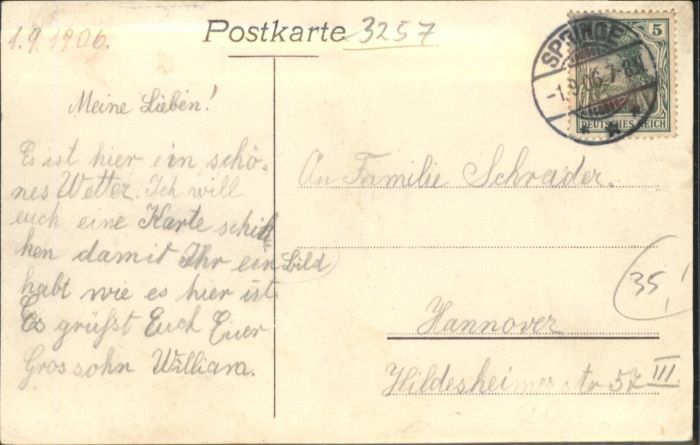 1.9.1906.
Postkarte 3257
SPRINGE
-1.9.06.7-8N.
5
DEUTSCHES REICH
Meine Lieben!
Es ist hier ein schö-
nes Wetter. Ich will
euch eine Karte schik
ken damit Ihr ein Bild
habt wie es hier ist.
Es grüßt Euch Euer
Grossohn William.
An Familie Schrader.
35,!
Hannover
Hildesheimerstr 57 III.